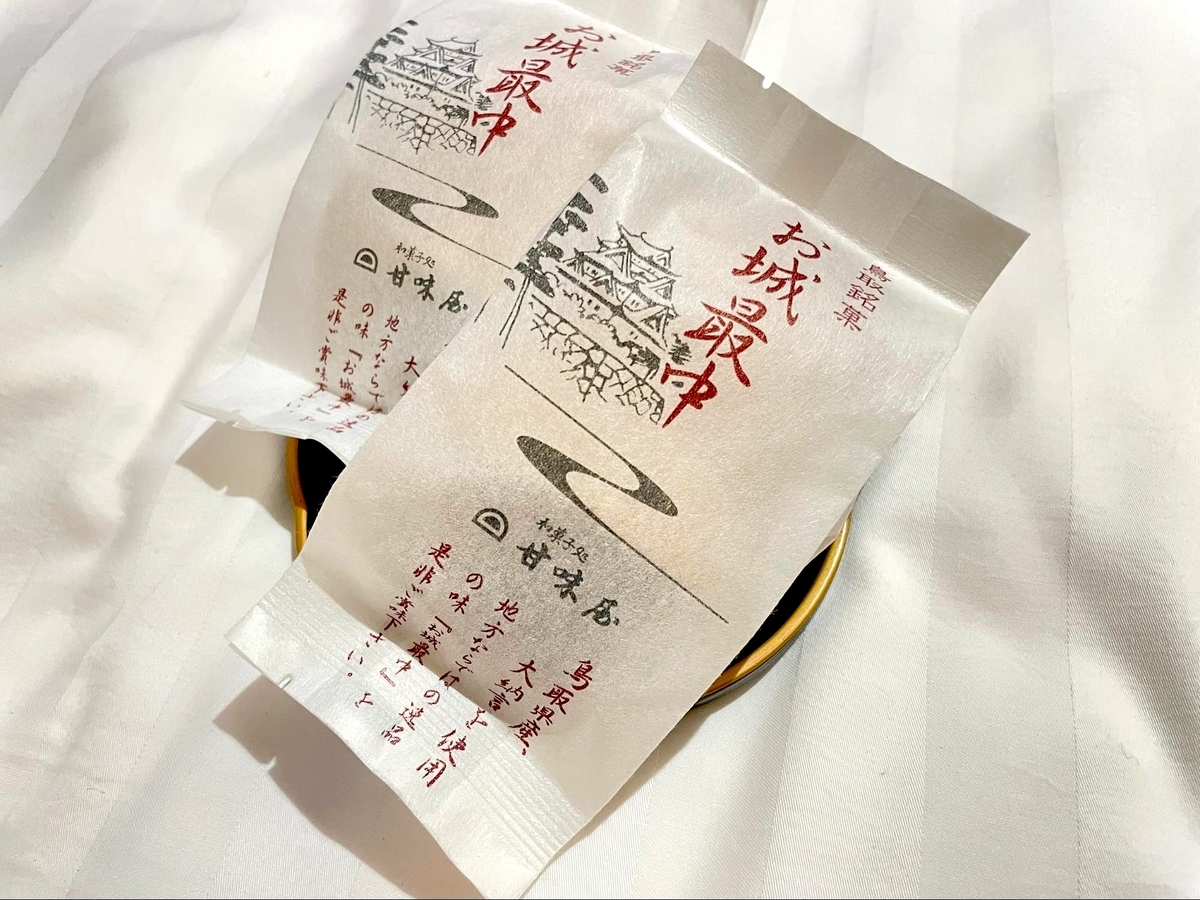 鳥取銘菓
お城最中
和菓子処
甘味屋
鳥取県産、
大納言を使用
地方ならではの逸品
の味「お城最中」を
是非ご賞味下さい。
銘菓
お城最中
和菓子処
甘味屋
大
地方ならでは
の味「お城
是非ご賞味下